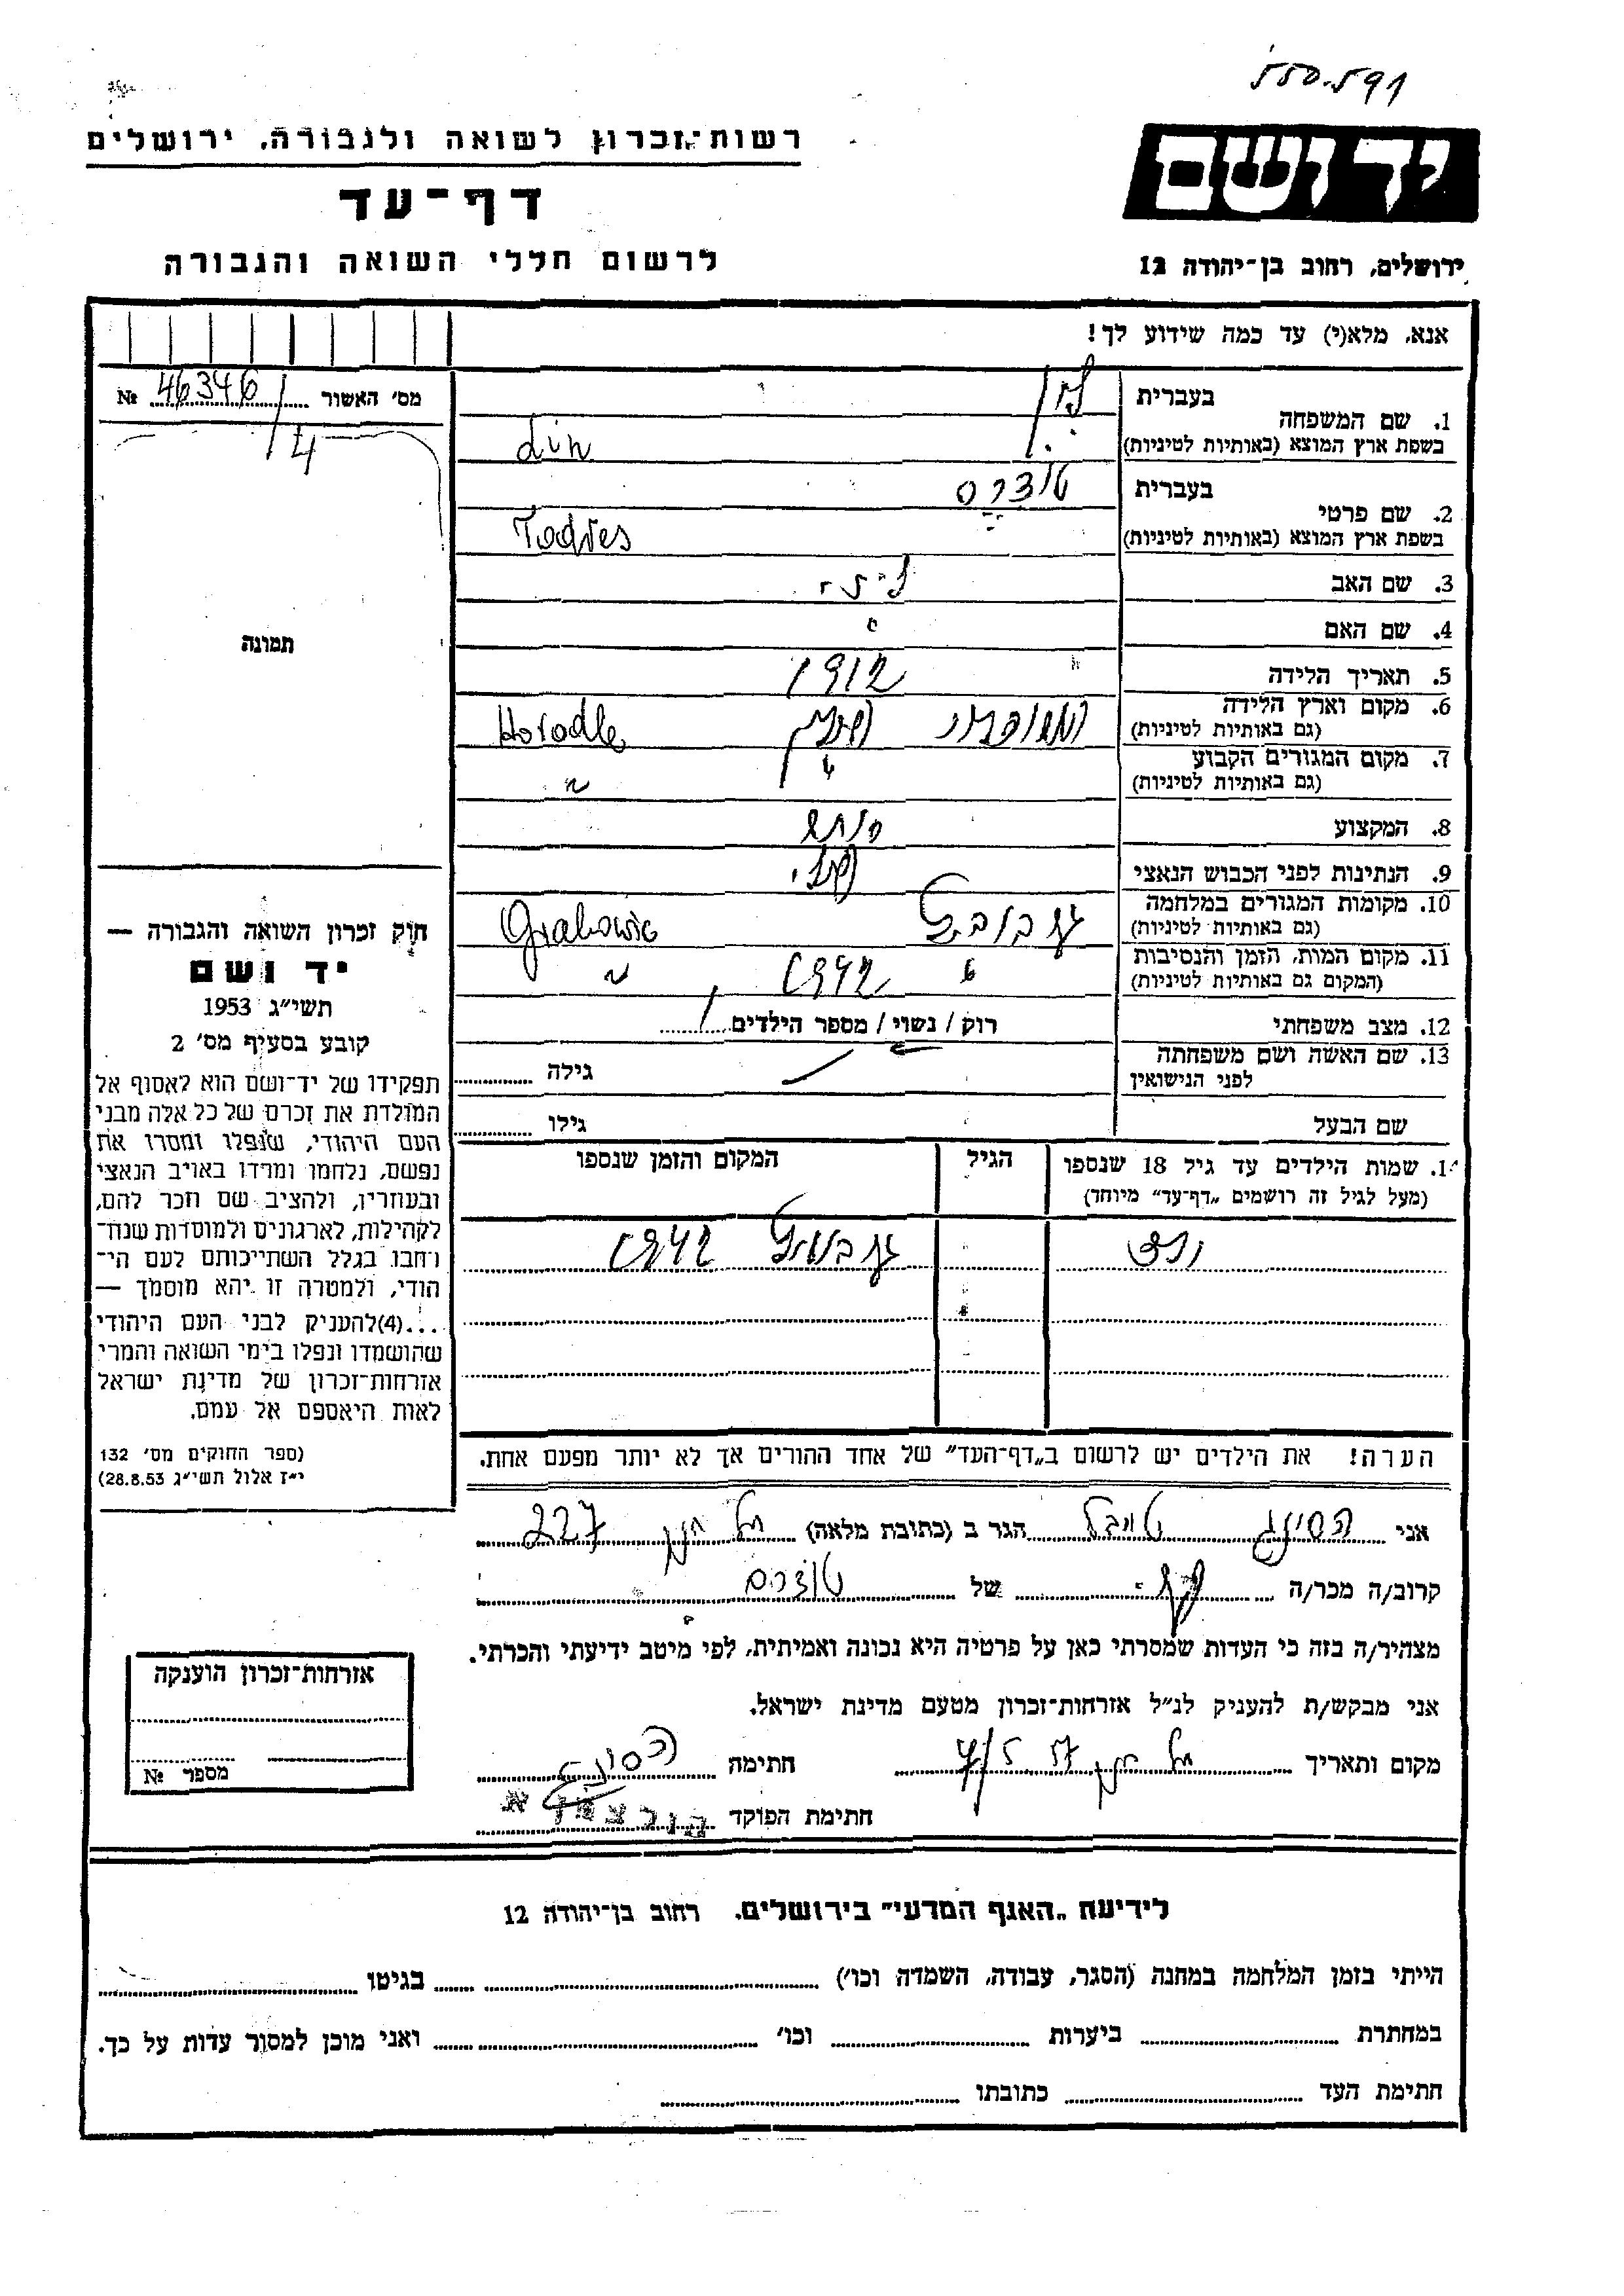 550.591
יד ושם
ירושלים, רחוב בן־יהודה 12
רשות־זכרון לשואה ולגבורה, ירושלים
דף־עד
לרשום חללי השואה והגבורה
אנא, מלא(י) עד כמה שידוע לך!
מס' האשור 46346 №
4
תמונה
1. שם המשפחה
בעברית
בשפת ארץ המוצא (באותיות לטיניות) Lin
2. שם פרטי
בעברית טודרס
בשפת ארץ המוצא (באותיות לטיניות) Todres
3. שם האב
4. שם האם
5. תאריך הלידה 1912
6. מקום וארץ הלידה
(גם באותיות לטיניות) פולין Horodle
7. מקום המגורים הקבוע
(גם באותיות לטיניות) " "
8. המקצוע סוחר
9. הנתינות לפני הכבוש הנאצי פולני
10. מקומות המגורים במלחמה
(גם באותיות לטיניות) גרבוביץ Grabowic
11. מקום המות, הזמן והנסיבות
(המקום גם באותיות לטיניות) " 1942 "
12. מצב משפחתי רוק / נשוי / מספר הילדים 1
13. שם האשה ושם משפחתה
לפני הנישואין גילה
שם הבעל גילו
1. שמות הילדים עד גיל 18 שנספו הגיל המקום והזמן שנספו
(מעל לגיל זה רושמים „דף־עד” מיוחד)
ילד גרבוביץ 1942
הערה! את הילדים יש לרשום ב„דף־העד” של אחד ההורים אך לא יותר מפעם אחת.
חוק זכרון השואה והגבורה —
יד ושם
תשי״ג 1953
קובע בסעיף מס' 2
תפקידו של יד־ושם הוא לאסוף אל
המולדת את זכרם של כל אלה מבני
העם היהודי, שנפלו ומסרו את
נפשם, נלחמו ומרדו באויב הנאצי
ובעוזריו, ולהציב שם וזכר להם,
לקהילות, לארגונים ולמוסדות שנח־
רבו בגלל השתייכותם לעם הי־
הודי, ולמטרה זו יהא מוסמך —
...(4)להעניק לבני העם היהודי
שהושמדו ונפלו בימי השואה והמרי
אזרחות־זכרון של מדינת ישראל
לאות היאספם אל עמם.
(ספר החוקים מס' 132
י״ז אלול תשי״ג 28.8.53)
אני הסינג טויבל הגר ב (כתובת מלאה) תל חנן 227
קרוב/ה מכר/ה של טודרס
מצהיר/ה בזה כי העדות שמסרתי כאן על פרטיה היא נכונה ואמיתית, לפי מיטב ידיעתי והכרתי.
אני מבקש/ת להעניק לנ״ל אזרחות־זכרון מטעם מדינת ישראל.
מקום ותאריך תל חנן 4/5 57 חתימה הסינג
חתימת הפוקד
אזרחות־זכרון הוענקה
מספר №
לידיעת „האגף המדעי” בירושלים, רחוב בן־יהודה 12
הייתי בזמן המלחמה במחנה (הסגר, עבודה, השמדה וכו') בגיטו
במחתרת ביערות וכו' ואני מוכן למסור עדות על כך.
חתימת העד כתובתו